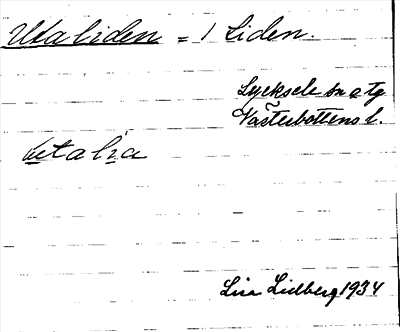 Utaliden = 1 Liden.
Lycksele sn o tg
Västerbottens l.
Lisa Lidberg 1934